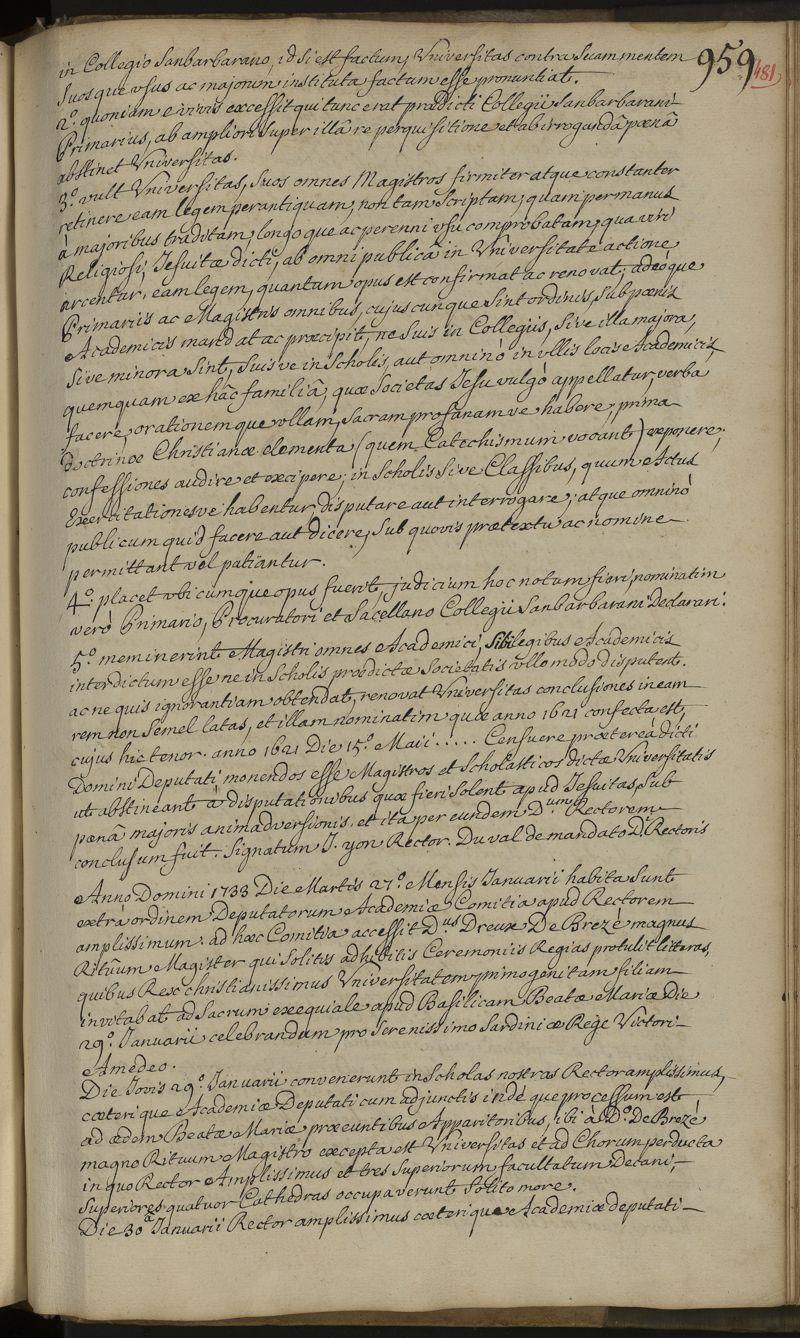 959
481
in Collegio Sanbarbarano, id si est factum, Universitas contra suam mentem
suosque usus ac majorum instituta factum esse pronuntiat.
2.º quoniam e vivis excessit qui tunc erat prædicti Collegii Sanbarbarani
Primarius, ab ampliori super illâ re perquisitione et ab irrogandâ pœnâ
abstinet Universitas.
3.º vult Universitas, suos omnes Magistros firmiter atque constanter
retinere eam legem perantiquam, non tam scriptam, quam per manus
à majoribus traditam, longoque ac perenni usu comprobatam, qua viri
Religiosi, Jesuitæ dicti, ab omni publicâ in Universitate actione
arcentur, eam legem, quantum opus est confirmat ac renovat, adeóque
Primariis ac Magistris omnibus, cujuscunque sint ordinis, sub pœnis
Academicis mandat ac præcipit, ne suis in Collegiis, sive illa majora,
sive minora sint, suisve in scholis, aut omninò in ullis locis Academicis,
quemquam ex hâc familiâ, quæ Societas Jesu vulgò appellatur, verba
facere, orationemque ullam, sacram profanamve habere, prima
doctrinæ Christianæ elementa (quem Catechismum vocant) exponere,
confessiones audire et excipere, in scholis sive Classibus, quum Actus
Exercitationesve habentur, disputare aut interrogare, atque omninò
publicum quid facere aut dicere, sub quovis prætextu ac nomine
permittant vel patiantur.
4.º placet ubicumque opus fuerit, judicium hoc notum fieri, nominatim
verò Primario, Procuratori et Sacellano Collegii Sanbarbarani Declarari.
5.º meminerint Magistri omnes Academici, sibi legibus Academicis
interdictum esse ne in scholis prædictæ Societatis ullo modo disputent.
ac ne quis ignorantiam obtendat, renovat Universitas conclusiones in eam
rem non semel latas, et illam nominatim quæ anno 1621 confecta est,
cujus hic tenor. anno 1621 Die 15.º Maii ..... Censuere prætereà dicti
Domini Deputati monendos esse Magistros et Scholasticos dictæ Universitatis
ut abstineant à disputationibus quæ fieri solent apud Jesuitas, sub
pœnâ majoris animadversionis. et ita per eundem D.num Rectorem
conclusum fuit. Signatum J. yon Rector. Du val de mandato D. Rectoris
Anno Domini 1733 Die Martis 27.º Mensis Januarii habita sunt
extrà ordinem Deputatorum Academiæ Comitia apud Rectorem
amplissimum. ad hæc Comitia accessit D.us Dreux De Brezé magnus
Rituum Magister qui solitis adhibitis Ceremoniis Regias protulit litteras,
quibus Rex christianissimus Universitatem primogenitam filiam
invitabat ad Sacrum exequiale apud Basilicam Beatæ Mariæ Die
29.º Januarii celebrandum pro Serenissimo Sardiniæ Rege Victori
Amedeo.
Die Jovis 29.º Januarii convenerunt in Scholas nostras Rector amplissimus,
cæterique Academiæ Deputati cum adjunctis indéque processum est
ad ædem Beatæ Mariæ præeuntibus Apparitoribus, ibi à D.º De Brezé
magno Rituum Magistro excepta est Universitas et ad Chorum perducta
in quo Rector Amplissimus et tres Superiorum facultatum Decani,
Superiores quatuor Cathedras occupaverunt solito more.
Die 30.ª Januarii Rector amplissimus cæterique Academiæ deputati